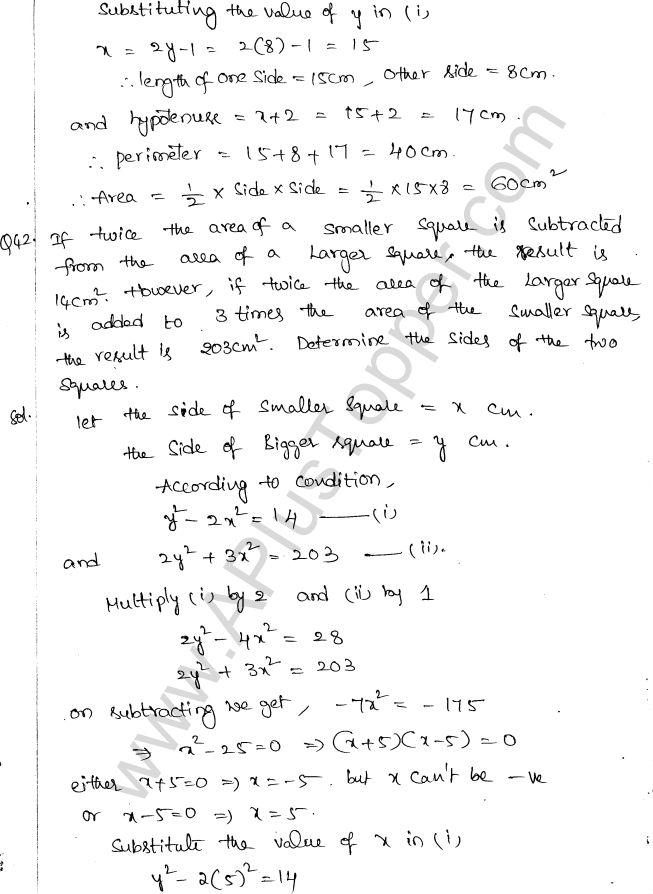 Substituting the value of y in (i)
x = 2y-1 = 2(8)-1 = 15
∴ length of one side = 15cm, Other side = 8cm.
and hypotenuse = x+2 = 15+2 = 17cm.
∴ perimeter = 15+8+17 = 40cm.
∴ Area = 1/2 × Side × Side = 1/2 × 15×8 = 60cm²
Q42. If twice the area of a smaller square is subtracted
from the area of a Larger square, the result is
14cm². However, if twice the area of the Larger square
is added to 3 times the area of the smaller square,
the result is 203cm². Determine the sides of the two
squares.
Sol. let the side of smaller square = x cm.
the side of Bigger square = y cm.
According to condition,
y² - 2x² = 14 —— (i)
and 2y² + 3x² = 203 —— (ii).
Multiply (i) by 2 and (ii) by 1
2y² - 4x² = 28
2y² + 3x² = 203
on subtracting we get, -7x² = -175
⇒ x² - 25 = 0 ⇒ (x+5)(x-5) = 0
either x+5=0 ⇒ x = -5. but x can't be -ve
or x-5=0 ⇒ x = 5.
Substitute the value of x in (i)
y² - 2(5)² = 14
www.APlusTopper.com